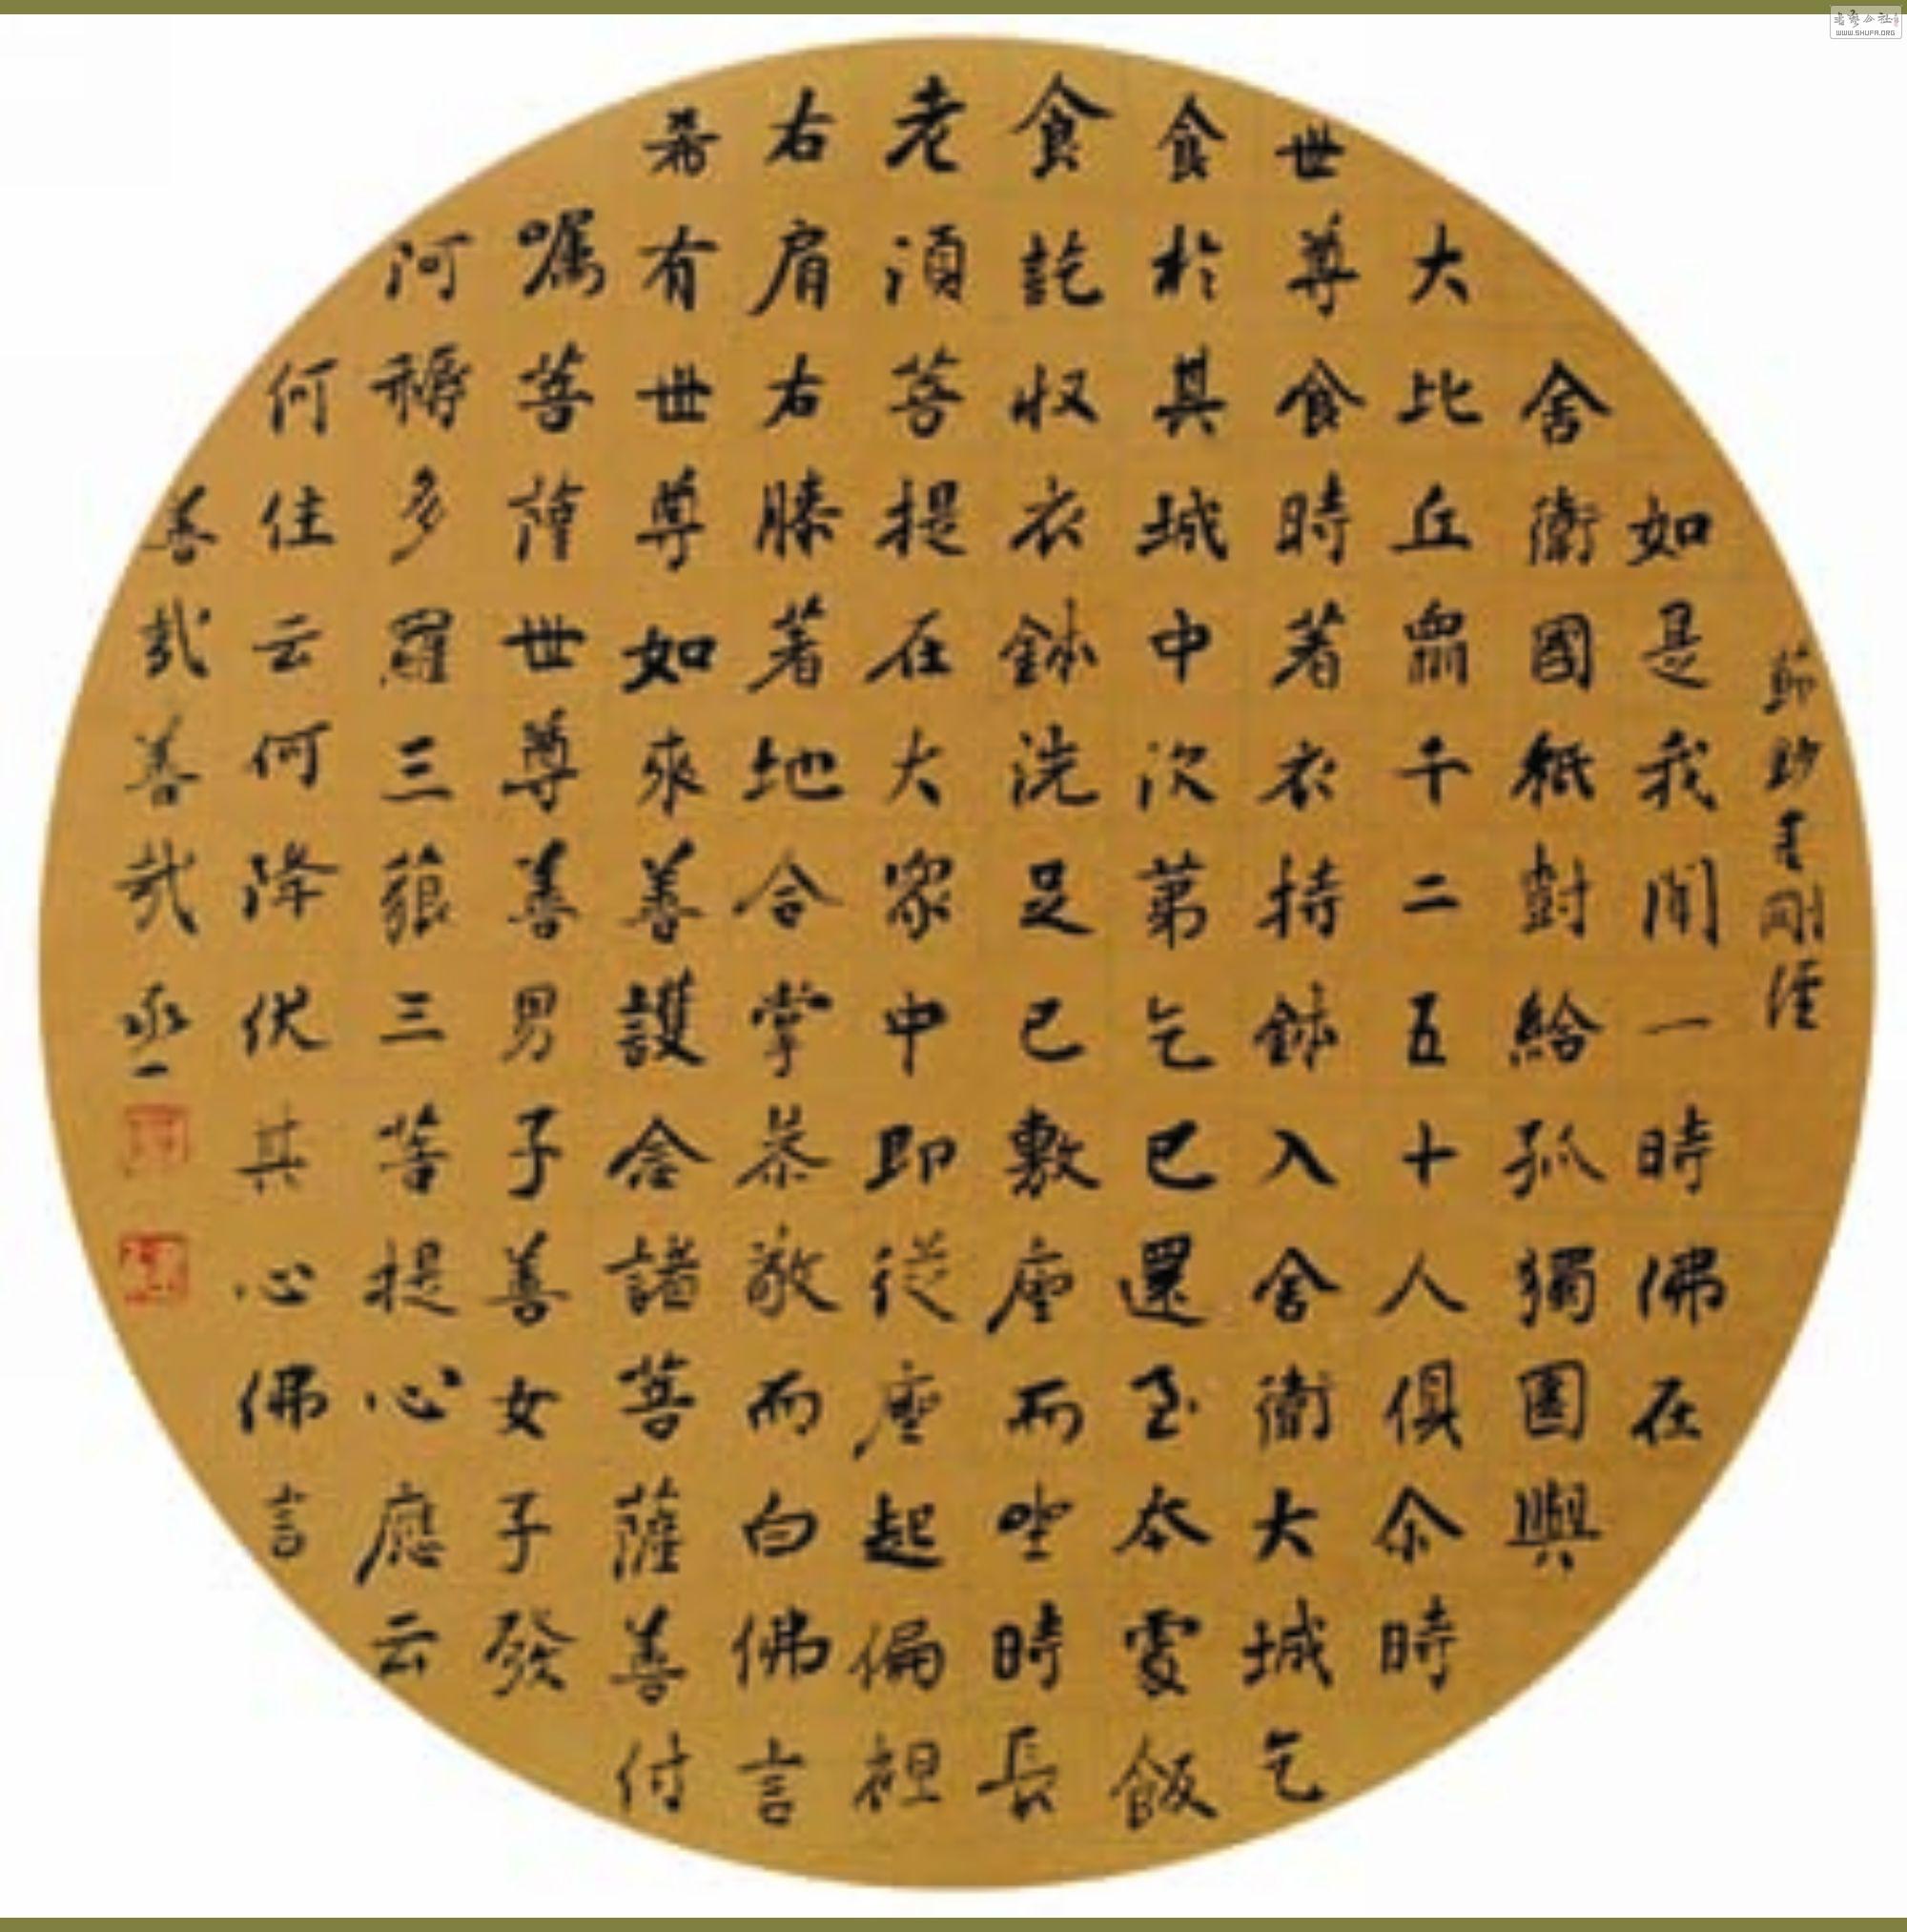 節抄金剛經
如是我聞一時佛在
舍衛國祇尌給孤獨園與
大比丘眾千二五十人俱尒時
世尊食時著衣持鉢入舍衛大城乞
食於其城中次第乞已還至本處飯
食訖収衣鉢洗足已敷座而坐時長
老須菩提在大眾中即從座起偏袒
右肩右膝著地合掌恭敬而白佛言
希有世尊如來善護念諸菩薩善付
嘱菩薩世尊善男子善女子發
阿耨多羅三藐三菩提心應云
何住云何降伏其心佛言
善哉善哉丞一
WWW.SHUFA.ORG